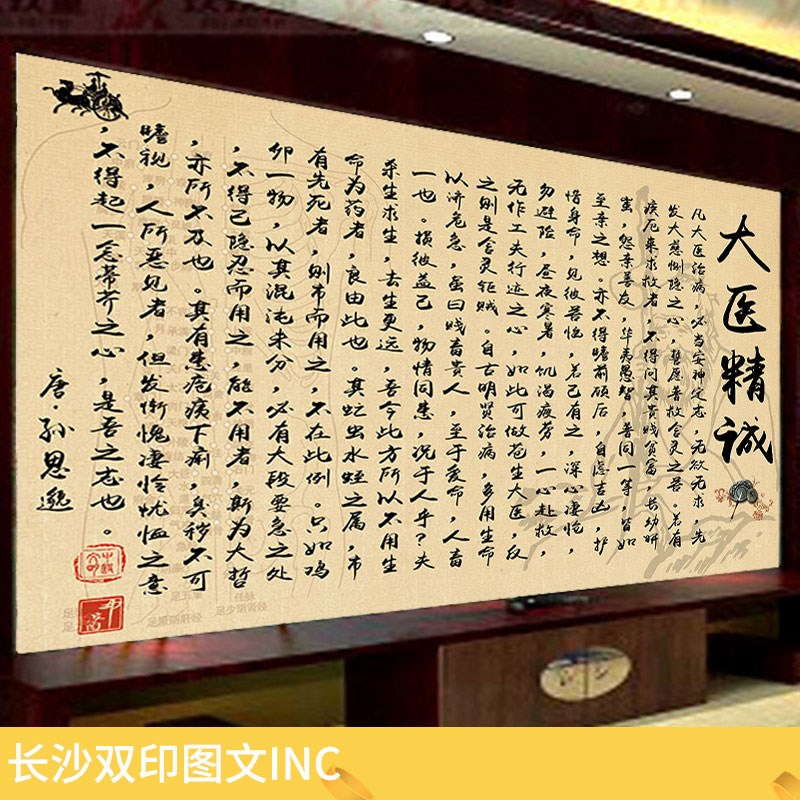 大医精诚
凡大医治病，必当安神定志，无欲无求，先
发大慈恻隐之心，誓愿普救含灵之苦。若有
疾厄来求救者，不得问其贵贱贫富，长幼妍
蚩，怨亲善友，华夷愚智，普同一等，皆如
至亲之想。亦不得瞻前顾后，自虑吉凶，护
惜身命，见彼苦恼，若己有之，深心凄怆，
勿避险，昼夜寒暑，饥渴疲劳，一心赴救，
无作工夫行迹之心，如此可做苍生大医，反
之则是含灵钜贼。自古明贤治病，多用生命
以济危急，虽曰贱畜贵人，至于爱命，人畜
一也。损彼益己，物情同患，况于人乎？夫
杀生求生，去生更远，吾今此方所以不用生
命为药者，良由此也。其虻虫水蛭之属，市
有先死者，则市而用之，不在此例。只如鸡
卵一物，以其混沌未分，必有大段要急之处
，不得已隐忍而用之，能不用者，斯为大哲
，亦所不及也。其有患疮痍下痢，臭秽不可
瞻视，人所恶见者，但发惭愧凄怜忧恤之意
，不得起一念蒂芥之心，是吾之志也。
唐·孙思邈
任脉
足厥阴肝经
足少阴肾经
长沙双印图文INC